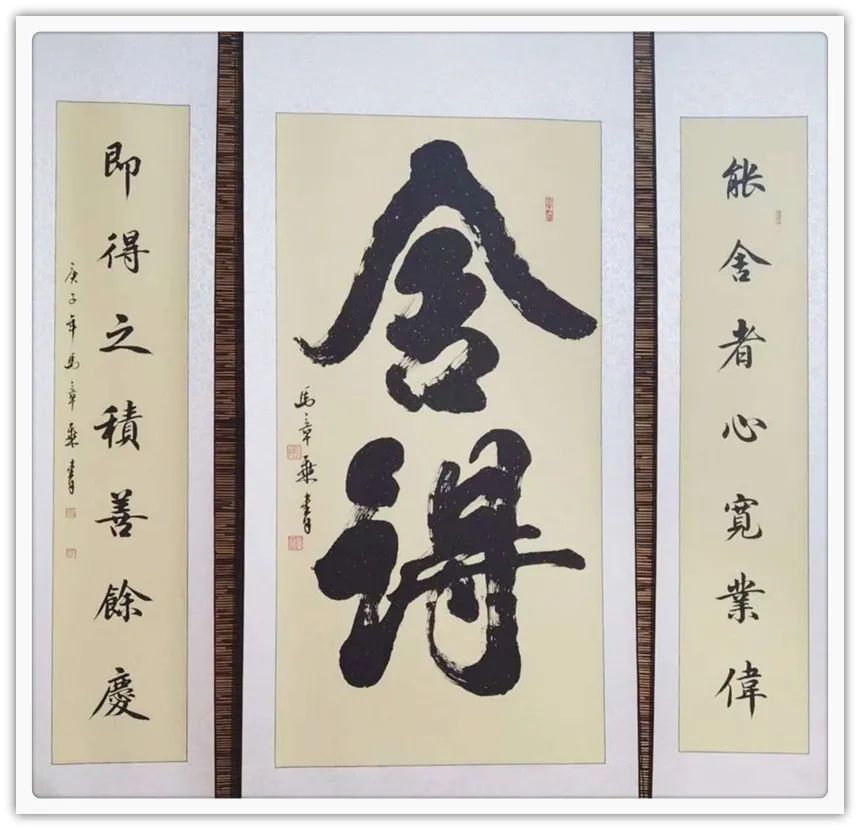 能舍者心寬業偉
舍得
馬章乘書
即得之積善餘慶
庚子年馬章乘書